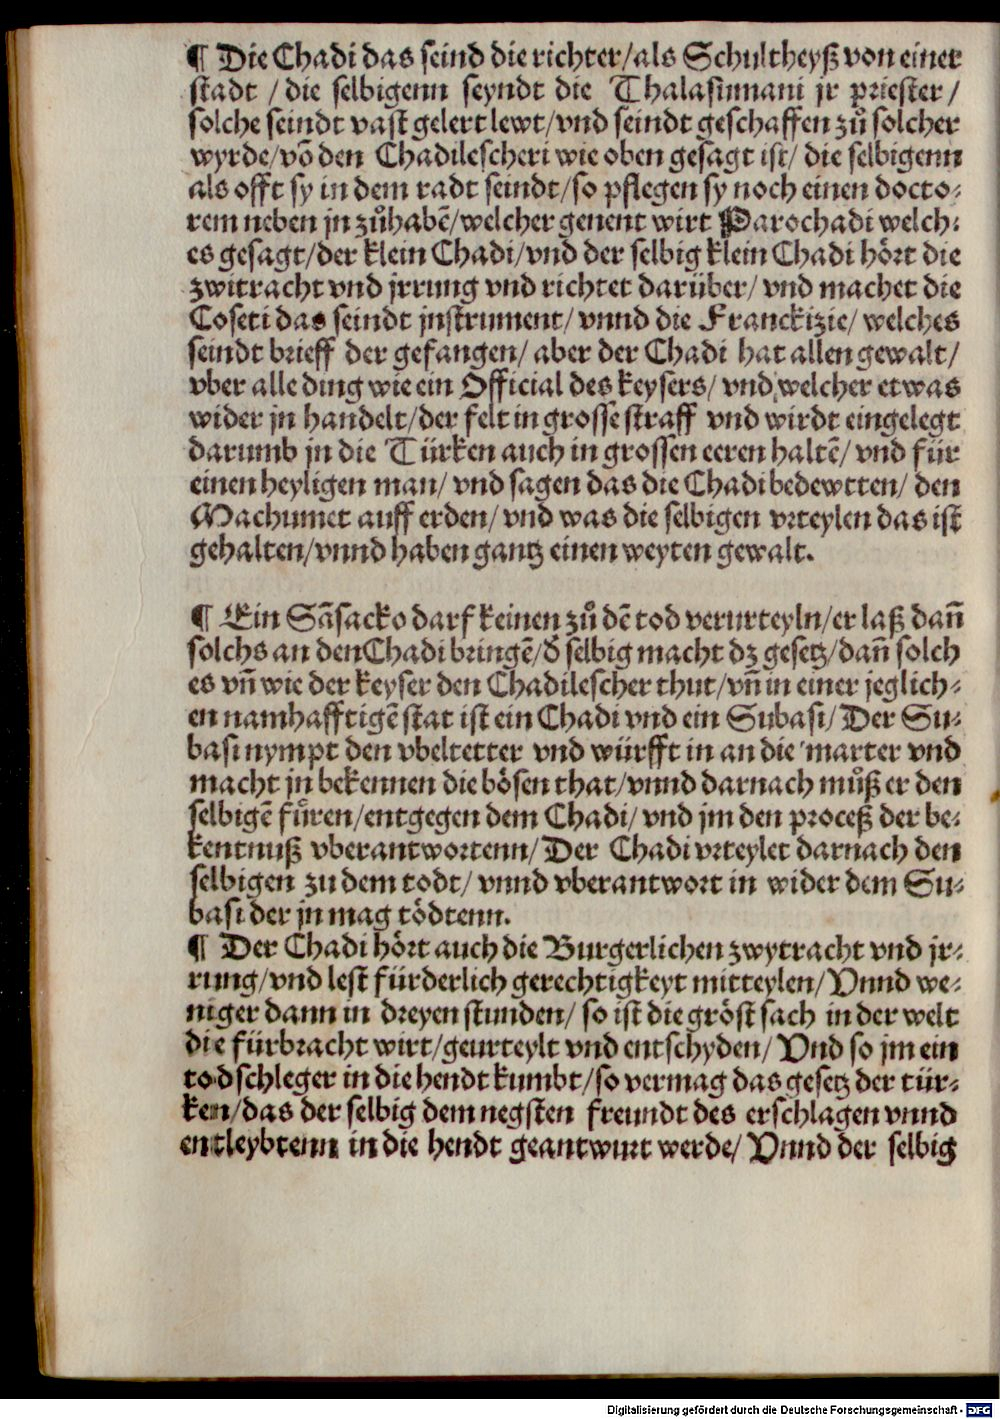 ¶ Die Chadi das seind die richter/als Schultheyß von einer
stadt / die selbigenn seyndt die Thalasimani jr priester/
solche seindt vast gelert lewt/vnd seindt geschaffen zů solcher
wyrde/võ den Chadilescheri wie oben gesagt ist/ die selbigenn
als offt sy in dem radt seindt/so pflegen sy noch einen docto⸗
rem neben jn zůhabẽ/welcher genent wirt Parochadi welch⸗
es gesagt/der klein Chadi/vnd der selbig klein Chadi hört die
zwitracht vnd jrrung vnd richtet darüber/ vnd machet die
Coseti das seindt jnstrument/ vnnd die Franckizie/ welches
seindt brieff der gefangen/ aber der Chadi hat allen gewalt/
vber alle ding wie ein Official des keysers/ vnd welcher etwas
wider jn handelt/der felt in grosse straff vnd wirdt eingelegt
darumb jn die Türken auch in grossen eeren haltẽ/ vnd für
einen heyligen man/ vnd sagen das die Chadi bedewtten/ den
Machumet auff erden/ vnd was die selbigen vrteylen das ist
gehalten/vnnd haben gantz einen weyten gewalt.
¶ Ein Sãsacko darf keinen zů dẽ tod verurteyln/er laß dañ
solchs an den Chadi bringẽ/d̕ selbig macht dz gesetz/dañ solch
es vñ wie der keyser den Chadilescher thut/vñ in einer jeglich⸗
en namhafftigẽ stat ist ein Chadi vnd ein Subasi/ Der Su⸗
basi nympt den vbeltetter vnd würfft in an die marter vnd
macht jn bekennen die bösen that/vnnd darnach můß er den
selbigẽ fůren/entgegen dem Chadi/ vnd jm den proceß der be⸗
kentnuß vberantwortenn/ Der Chadi vrteylet darnach den
selbigen zu dem todt/ vnnd vberantwort in wider dem Su⸗
basi der jn mag tödtenn.
¶ Der Chadi hört auch die Burgerlichen zwytracht vnd jr⸗
rung/vnd lest fürderlich gerechtigkeyt mitteylen/ Vnnd we⸗
niger dann in dreyen stunden/ so ist die gröst sach in der welt
die fürbracht wirt/geurteylt vnd entschyden/ Vnd so jm ein
todschleger in die hendt kumbt/so vermag das gesetz der tür⸗
ken/das der selbig dem negsten freundt des erschlagen vnnd
entleybtenn in die hendt geantwurt werde/ Vnnd der selbig
Digitalisierung gefördert durch die Deutsche Forschungsgemeinschaft - DFG